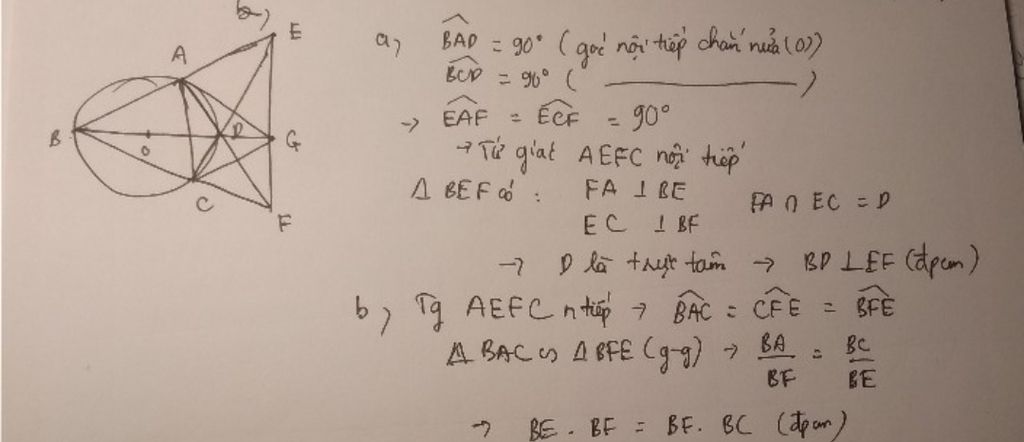 b)
E
A
B
O
D
G
C
F
a) BAD = 90° (góc nội tiếp chắn nửa (O))
BCD = 90° ( ——— )
→ EAF = ECF = 90°
→ Tứ giác AEFC nội tiếp
Δ BEF có : FA ⊥ BE
EC ⊥ BF FA ∩ EC = D
→ D là trực tâm → BD ⊥ EF (đpcm)
b) Tg AEFC n tiếp → BAC = CFE = BFE
Δ BAC ∽ Δ BFE (g-g) → BA/BF = BC/BE
→ BE . BF = BF . BC (đpcm)